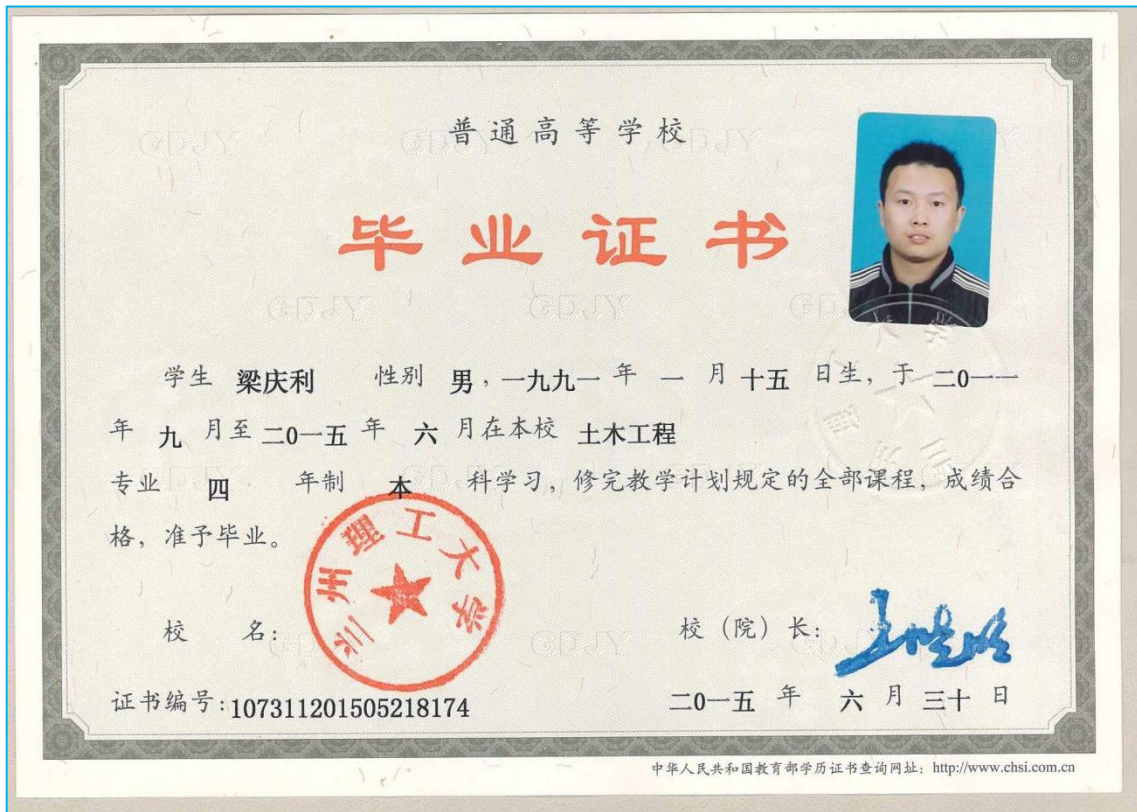 普通高等学校
毕业证书
学生 梁庆利 性别 男，一九九一 年 一 月 十五 日生，于 二0一一
年 九 月至 二0一五 年 六 月在本校 土木工程
专业 四 年制 本 科学习，修完教学计划规定的全部课程，成绩合
格，准予毕业。
兰州理工大学
校 名：
校（院）长：
证书编号：107311201505218174
二0一五 年 六 月 三十 日
中华人民共和国教育部学历证书查询网址：http://www.chsi.com.cn